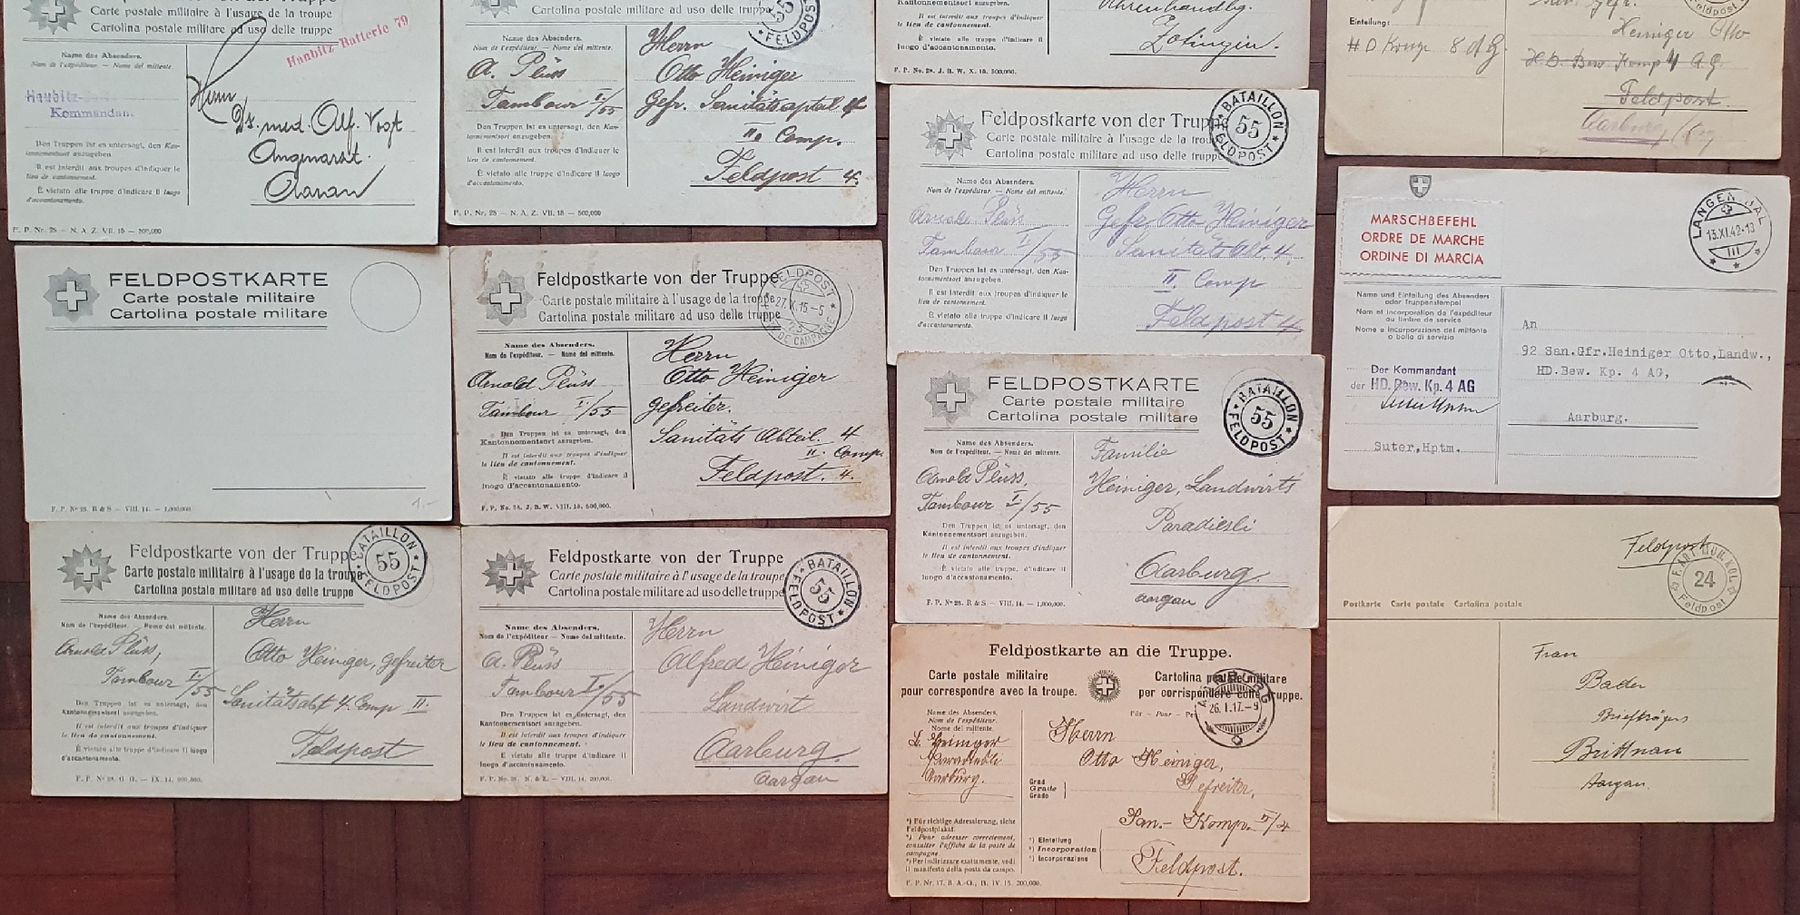 Carte postale militaire à l'usage de la troupe
Cartolina postale militare ad uso delle truppe
Haubitz-Batterie 79
Name des Absenders.
Nom de l'expéditeur — Nome del mittente.
Kommandant
Den Truppen ist es untersagt, den Kantonnementsort anzugeben.
Il est interdit aux troupes d'indiquer le lieu de cantonnement.
È vietato alle truppe d'indicare il luogo d'accantonamento.
Herrn
Dr. med. Alf. Vogt
Augenarzt.
Aarau
F. P. Nr. 28 — N. A. Z. VII. 15 — 500,000
Carte postale militaire à l'usage de la troupe
Cartolina postale militare ad uso delle truppe
55
FELDPOST
Name des Absenders.
Nom de l'expéditeur — Nome del mittente.
A. Plüss
Tambour I/55
Den Truppen ist es untersagt, den Kantonnementsort anzugeben.
Il est interdit aux troupes d'indiquer le lieu de cantonnement.
È vietato alle truppe d'indicare il luogo d'accantonamento.
Herrn
Otto Heiniger
Gefr. Sanitätsabtal 4
II. Comp.
Feldpost 4.
F. P. Nr. 28 — N. A. Z. VII. 15 — 500,000
Il est interdit aux troupes d'indiquer le lieu de cantonnement.
È vietato alle truppe d'indicare il luogo d'accantonamento.
Zofingen.
F. P. No. 28. J. B. W. X. 15. 500,000.
Feldpost
Einteilung:
H D Komp 8 A G
Gefr.
Heiniger Otto
H. D. Bew Komp 4 A. G
Feldpost.
Aarburg
FELDPOSTKARTE
Carte postale militaire
Cartolina postale militare
1.-
F. P. Nº 28. R & S — VIII. 14. — 1,000,000.
Feldpostkarte von der Truppe
Carte postale militaire à l'usage de la troupe
Cartolina postale militare ad uso delle truppe
FELDPOST
27.X.15.-5
DE CAMPAGNE
Name des Absenders.
Nom de l'expéditeur — Nome del mittente.
Arnold Plüss
Tambour I/55
Den Truppen ist es untersagt, den Kantonnementsort anzugeben.
Il est interdit aux troupes d'indiquer le lieu de cantonnement.
È vietato alle truppe d'indicare il luogo d'accantonamento.
Herrn
Otto Heiniger
Gefreiter.
Sanitäts Abteil. 4
II. Comp.
Feldpost. 4.
F. P. No. 28. J. B. W. VIII. 15. 500,000.
Feldpostkarte von der Truppe
Carte postale militaire à l'usage de la troupe
Cartolina postale militare ad uso delle truppe
BATAILLON
55
FELDPOST
Name des Absenders.
Nom de l'expéditeur. — Nome del mittente.
Plüss
Tambour I/55
Den Truppen ist es untersagt, den Kantonnementsort anzugeben.
Il est interdit aux troupes d'indiquer le lieu de cantonnement.
È vietato alle truppe d'indicare il luogo d'accantonamento.
Herrn
Gefr. Otto Heiniger
Sanitätsabt. 4.
II Comp
Feldpost 4
MARSCHBEFEHL
ORDRE DE MARCHE
ORDINE DI MARCIA
LANGENTHAL
13.XI.42-13
III
Name und Einteilung des Absenders
oder Truppenstempel
Nom et incorporation de l'expéditeur
ou timbre de service
Nome e incorporazione del mittente
o bollo di servizio
Der Kommandant
der HD. Bew. Kp. 4 AG
Suter, Hptm.
An
92 San.Gfr.Heiniger Otto,Landw.,
HD.Bew. Kp. 4 AG,
Aarburg.
FELDPOSTKARTE
Carte postale militaire
Cartolina postale militare
BATAILLON
55
FELDPOST
Name des Absenders.
Nom de l'expéditeur. — Nome del mittente.
Arnold Plüss,
Tambour I/55
Den Truppen ist es untersagt, den Kantonnementsort anzugeben.
Il est interdit aux troupes d'indiquer le lieu de cantonnement.
È vietato alle truppe, d'indicare il luogo d'accantonamento.
Familie
Heiniger, Landwirts
Paradiesli
Aarburg
Aargau
F. P. Nº 28. R & S — VIII. 14. — 1,000,000.
Feldpostkarte von der Truppe
Carte postale militaire à l'usage de la troupe
Cartolina postale militare ad uso delle truppe
BATAILLON
55
FELDPOST
Name des Absenders.
Nom de l'expéditeur. Nome del mittente.
Arnold Plüss,
Tambour I/55
Den Truppen ist es untersagt, den Kantonnementsort anzugeben.
Il est interdit aux troupes d'indiquer le lieu de cantonnement.
È vietato alle truppe d'indicare il luogo d'accantonamento.
Herrn
Otto Heiniger, Gefreiter
Sanitätsabt 4. Comp II.
Feldpost
Feldpostkarte von der Truppe
Carte postale militaire à l'usage de la troupe
Cartolina postale militare ad uso delle truppe
BATAILLON
55
FELDPOST
Name des Absenders.
Nom de l'expéditeur — Nome del mittente.
A. Plüss
Tambour I/55
Den Truppen ist es untersagt, den Kantonnementsort anzugeben.
Il est interdit aux troupes d'indiquer le lieu de cantonnement.
È vietato alle truppe d'indicare il luogo d'accantonamento.
Herrn
Alfred Heiniger
Landwirt
Aarburg
Aargau
Feldpostkarte an die Truppe.
Carte postale militaire
pour correspondre avec la troupe.
Cartolina postale militare
per corrispondere colle truppe.
26.I.17.-9
Für — Pour — Per
Name des Absenders.
Nom de l'expéditeur.
Nome del mittente.
Heiniger
Aarburg.
Herrn
Otto Heiniger,
Grad
Grade
Grado
Gefreiter,
San.- Komp. II/4
*) Einteilung
*) Incorporation
*) Incorporazione
Feldpost.
*) Für richtige Adressierung, siehe Feldpostplakat.
*) Pour adresser correctement, consulter l'affiche de la poste de campagne
*) Per indirizzare esattamente, vedi il manifesto della posta da campo.
F. P. Nr. 17. B. A.-G., B. IV. 15. 200,000.
Feldpost
24
Feldpost
Postkarte Carte postale Cartolina postale
Frau
Bader
Briefträgers
Brittnau
Aargau.